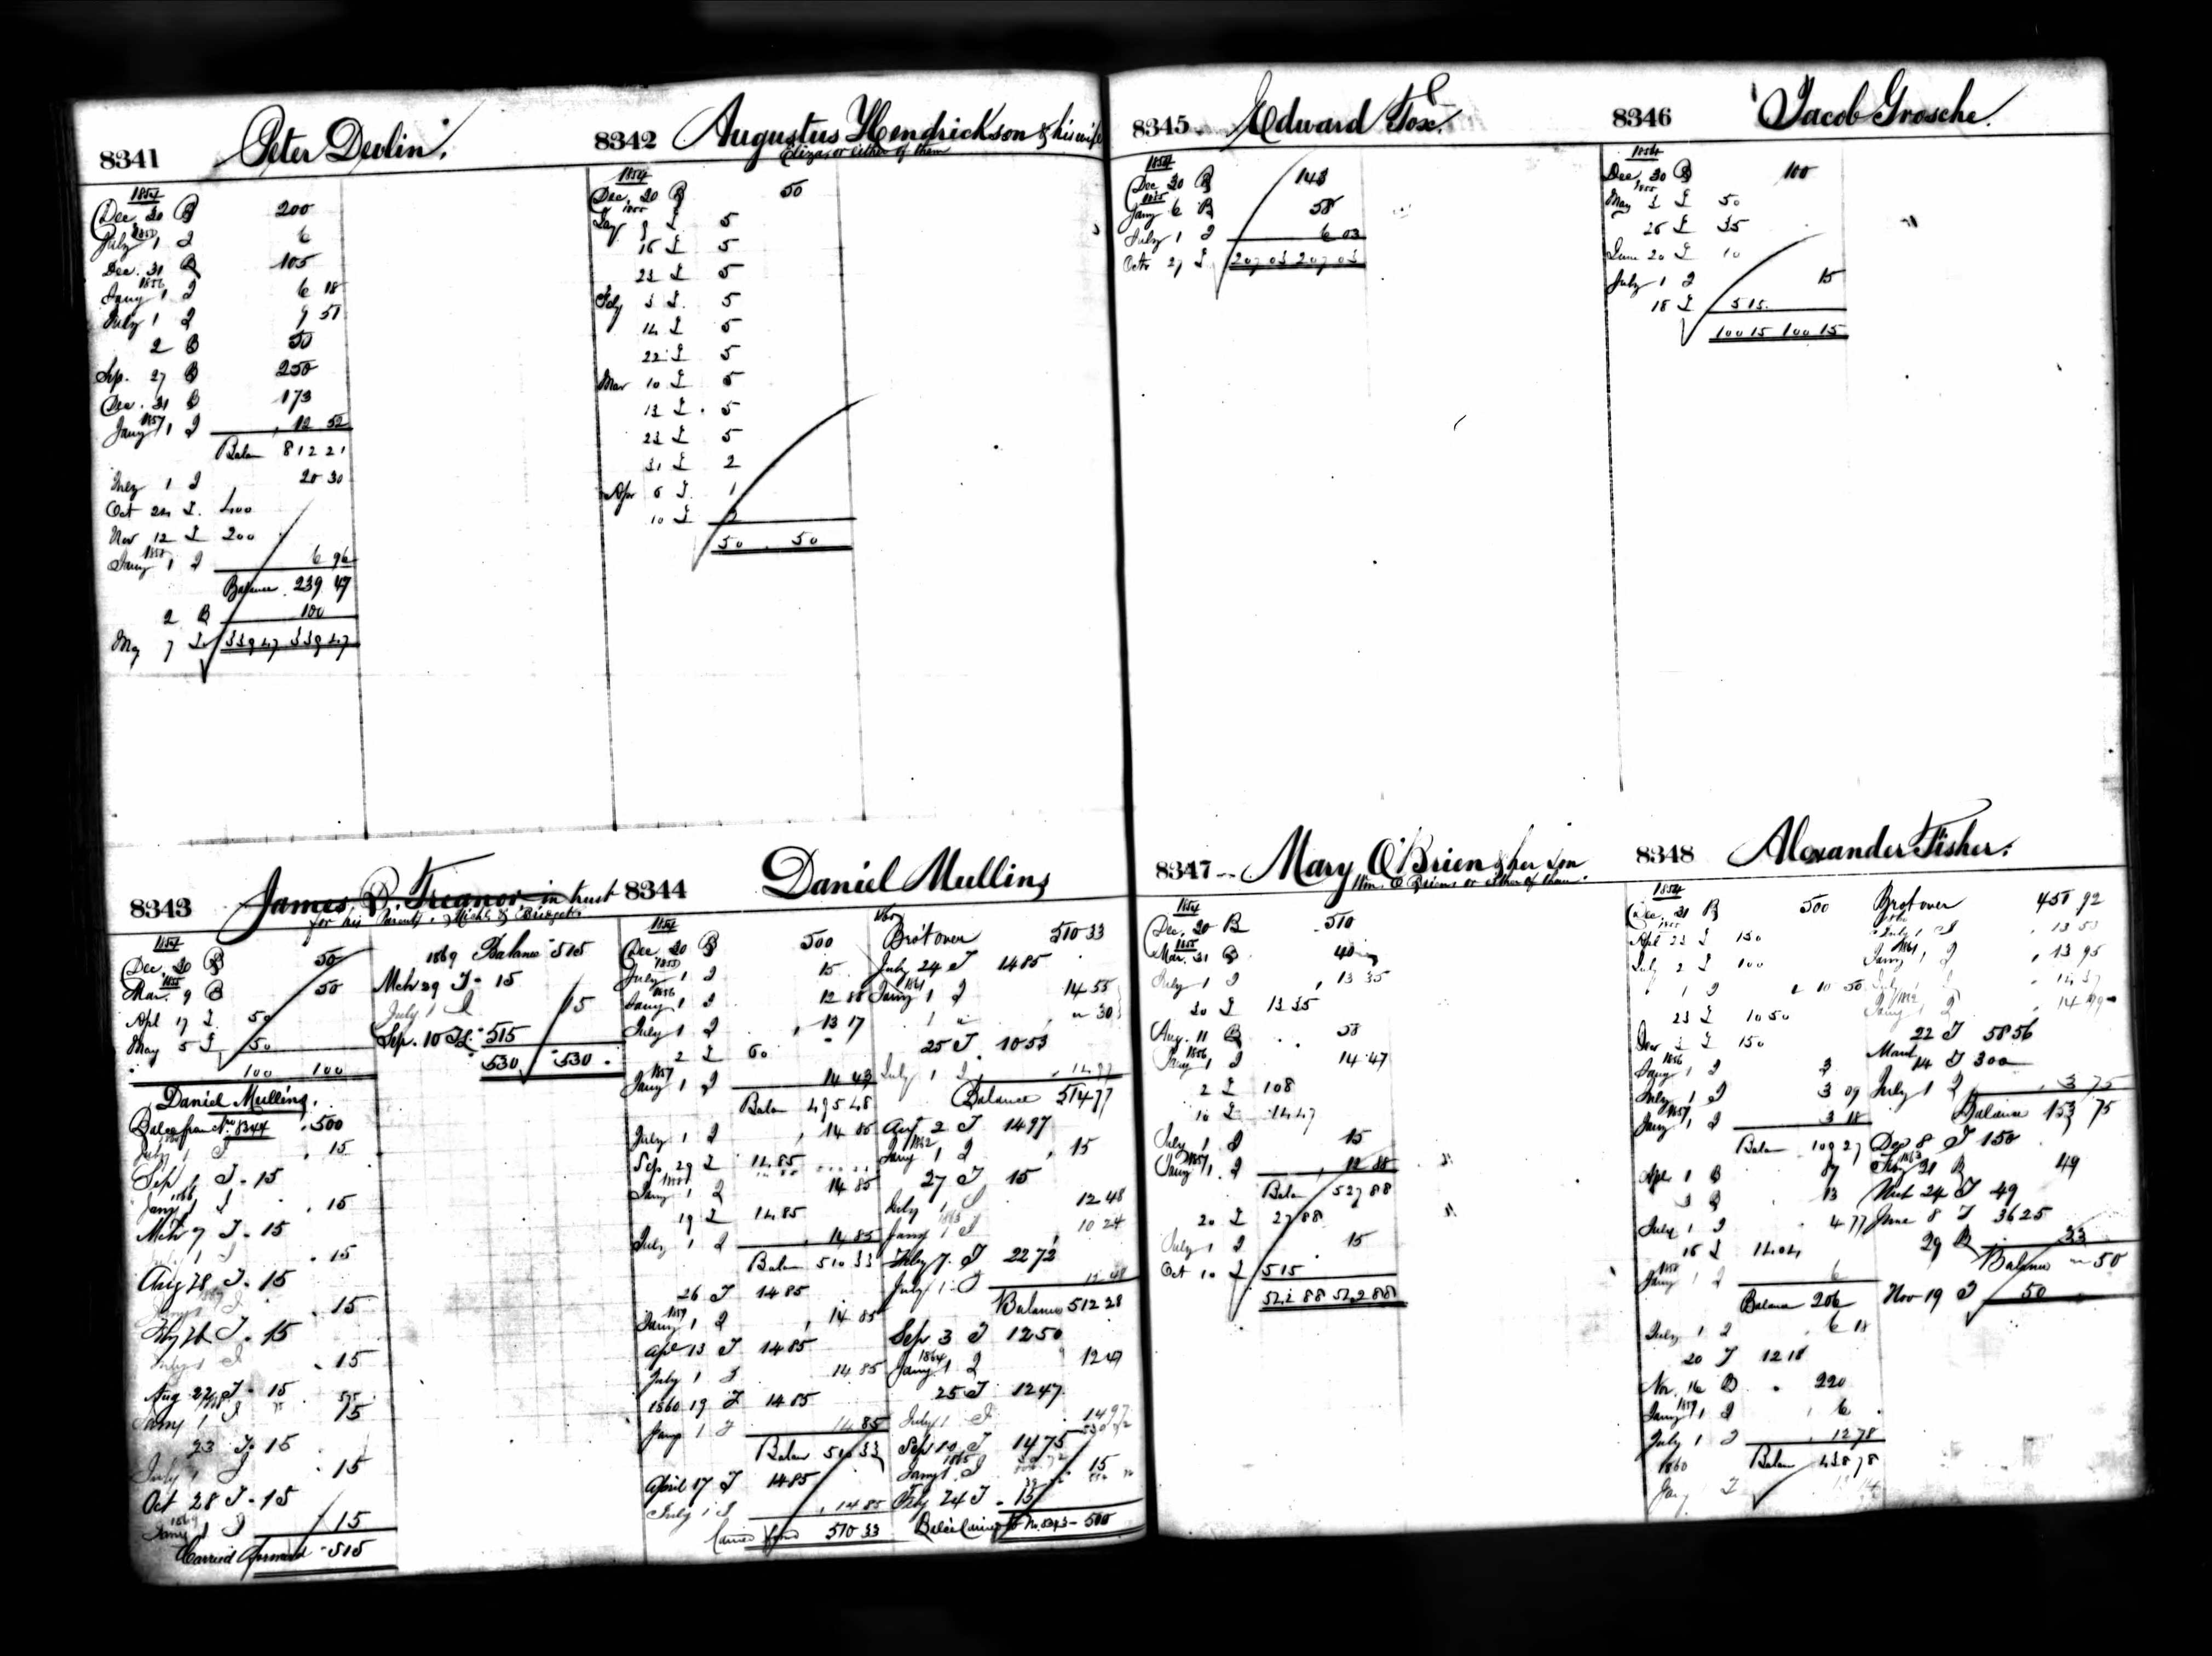 8341 Peter Devlin.
1854
Dec. 30 B 200
July 1 I 6
Dec. 31 B 105
1856
Jany 1 I 6 18
July 1 I 9 51
2 B 50
Sep. 27 B 250
Dec. 31 B 173
1857
Jany 1 I 12 52
Balan 812 21
July 1 I 20 30
Oct 24 I. 400
Nov 12 I 200
1858
Jany 1 I 6 96
Balance 239 47
2 B 100
May 7 I 339 47 339 47
8342 Augustus Hendrickson & his wife
Eliza or either of them
1854
Dec. 30 B 50
1855
Jany 9 I 5
16 I 5
23 I 5
Feby 3 I. 5
14 I 5
22 I 5
Mar 10 I 5
13 I 5
23 I 5
31 I 2
Apr 6 I. 1
10 I 2
50 50
8343 James P. Treanor in trust
for his Parents, Michl & Bridget
1854
Dec. 30 B 50
1855
Mar. 9 B 50
Apl 17 I. 50
May 5 I 50
100 100
Daniel Mullins.
Balce from No 8344 500
July 1 I 15
Sep 1 I 15
1866
Jany 1 I 15
Mch 7 I 15
July 1 I 15
Aug 28 I 15
Jany 1 I 15
Feby 26 I 15
July 1 I 15
Aug 22 I 15
1868
Jany 1 I 15
23 I 15
July 1 I 15
Oct 28 I 15
1869
Jany 1 I 15
Carried forward 515
1869 Balance 515
Mch 29 I 15
July 1 I 15
Sep. 10 I 515
530 530
8344 Daniel Mullins
1854
Dec 30 B 500
1855
July 1 I 15
1856
Jany 1 I 12 88
July 1 I 13 17
2 I 60
1857
Jany 1 I 14 43
Balan 495 48
July 1 I 14 85
Sep. 29 I 14 85
1858
Jany 1 I 14 85
19 I 14 85
July 1 I 14 85
Balan 510 33
26 I 14 85
1859
Jany 1 I 14 85
Apl 13 I 14 85
July 1 I 14 85
1860 19 I 14 85
Jany 1 I 14 85
Balan 510 33
April 17 I 14 85
July 1 I 14 85
Carried ford 510 33
1860
Brot over 510 33
July 24 I 14 85
1861
Jany 1 I 14 55
1 " " 30
25 I 10 53
July 1 I 14 97
Balance 514 77
Aug 2 I 14 97
1862
Jany 1 I 15
27 I 15
July 1 I 12 48
1863
Jany 1 I 10 24
Feby 7 I 22 72
July 1 I 12 48
Balance 512 28
Sep 3 I 12 50
1864
Jany 1 I 12 47
25 I 12 47
July 1 I 14 97
Sep 10 I 14 75
1865
Jany 1 I 15
Feby 24 I 15
Balce Carried to No. 8343 500
8345 Edward Fox.
1854
Dec 30 B 143
1855
Jany 6 B 58
July 1 I 6 03
Octr 27 I 207 03 207 03
8346 Jacob Grosche.
1854
Dec. 30 B 100
1855
May 3 I 50
26 I 35
June 20 I 10
July 1 I 15
18 I 5 15
100 15 100 15
8347 Mary O'Brien & her son
Wm. O'Brien or either of them.
1854
Dec. 30 B 510
1855
Mar. 31 B 40
July 1 I 13 35
30 I 13 35
Aug. 11 B 58
1856
Jany 1 I 14 47
2 I 108
10 I 14 47
July 1 I 15
1857
Jany 1 I 12 88
Balan 527 88
20 I 27 88
July 1 I 15
Oct 10 I 515
542 88 542 88
8348 Alexander Fisher.
1854
Dec. 31 B 500
1855
Apl 23 I 150
July 2 I 100
1 I 10 50
23 I 10 50
Decr 3 I 150
1856
Jany 1 I 3
July 1 I 3 09
1857
Jany 1 I 3 18
Balan 109 27
Apl 1 B 87
3 B 13
July 1 I 4 77
16 I 14 04
1858
Jany 1 I 6
Balance 206
July 1 I 6 18
20 I 12 18
Nov. 16 B 220
1859
Jany 1 I 6
July 1 I 12 78
Balan 438 78
1860
Jany I
Brot over 451 92
July 1 I 13 53
1861
Jany 1 I 13 95
July 1 I 14 37
1862
Jany 1 I 14 79
22 I 58 56
March 14 I 300
July 1 I 3 75
Balance 153 75
Dec 8 I 150
1863
Jany 21 B 49
Mch 24 I 49
June 8 I 36 25
29 B 33
Balance 50
Nov 19 I 50